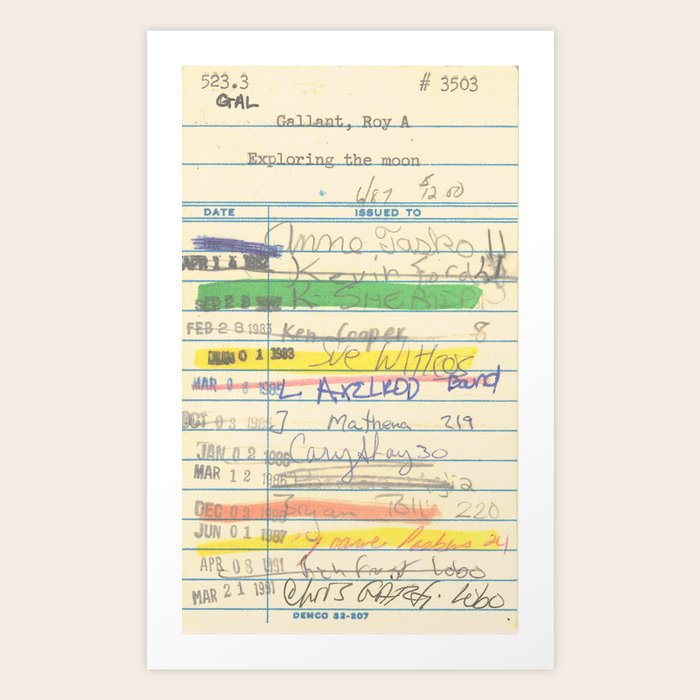 523.3 # 3503
GAL
Gallant, Roy A
Exploring the moon
6/87 $12.00
DATE ISSUED TO
Anne Tasko 11
APR 14 Kevin Ford
SEP 28 K. SHERIDAN
FEB 28 1983 Ken Cooper 8
JUN 01 1983 Sue Wittcos
MAR 06 1985 L AXELROD Band
OCT 03 1985 J Mathena 219
JAN 02 1986 Cary 30
MAR 12 1986
DEC 03 1986 Bryan 220
JUN 01 1987 24
APR 08 1991 Lobo
MAR 21 1991 CHRIS Lobo
DEMCO 32-207